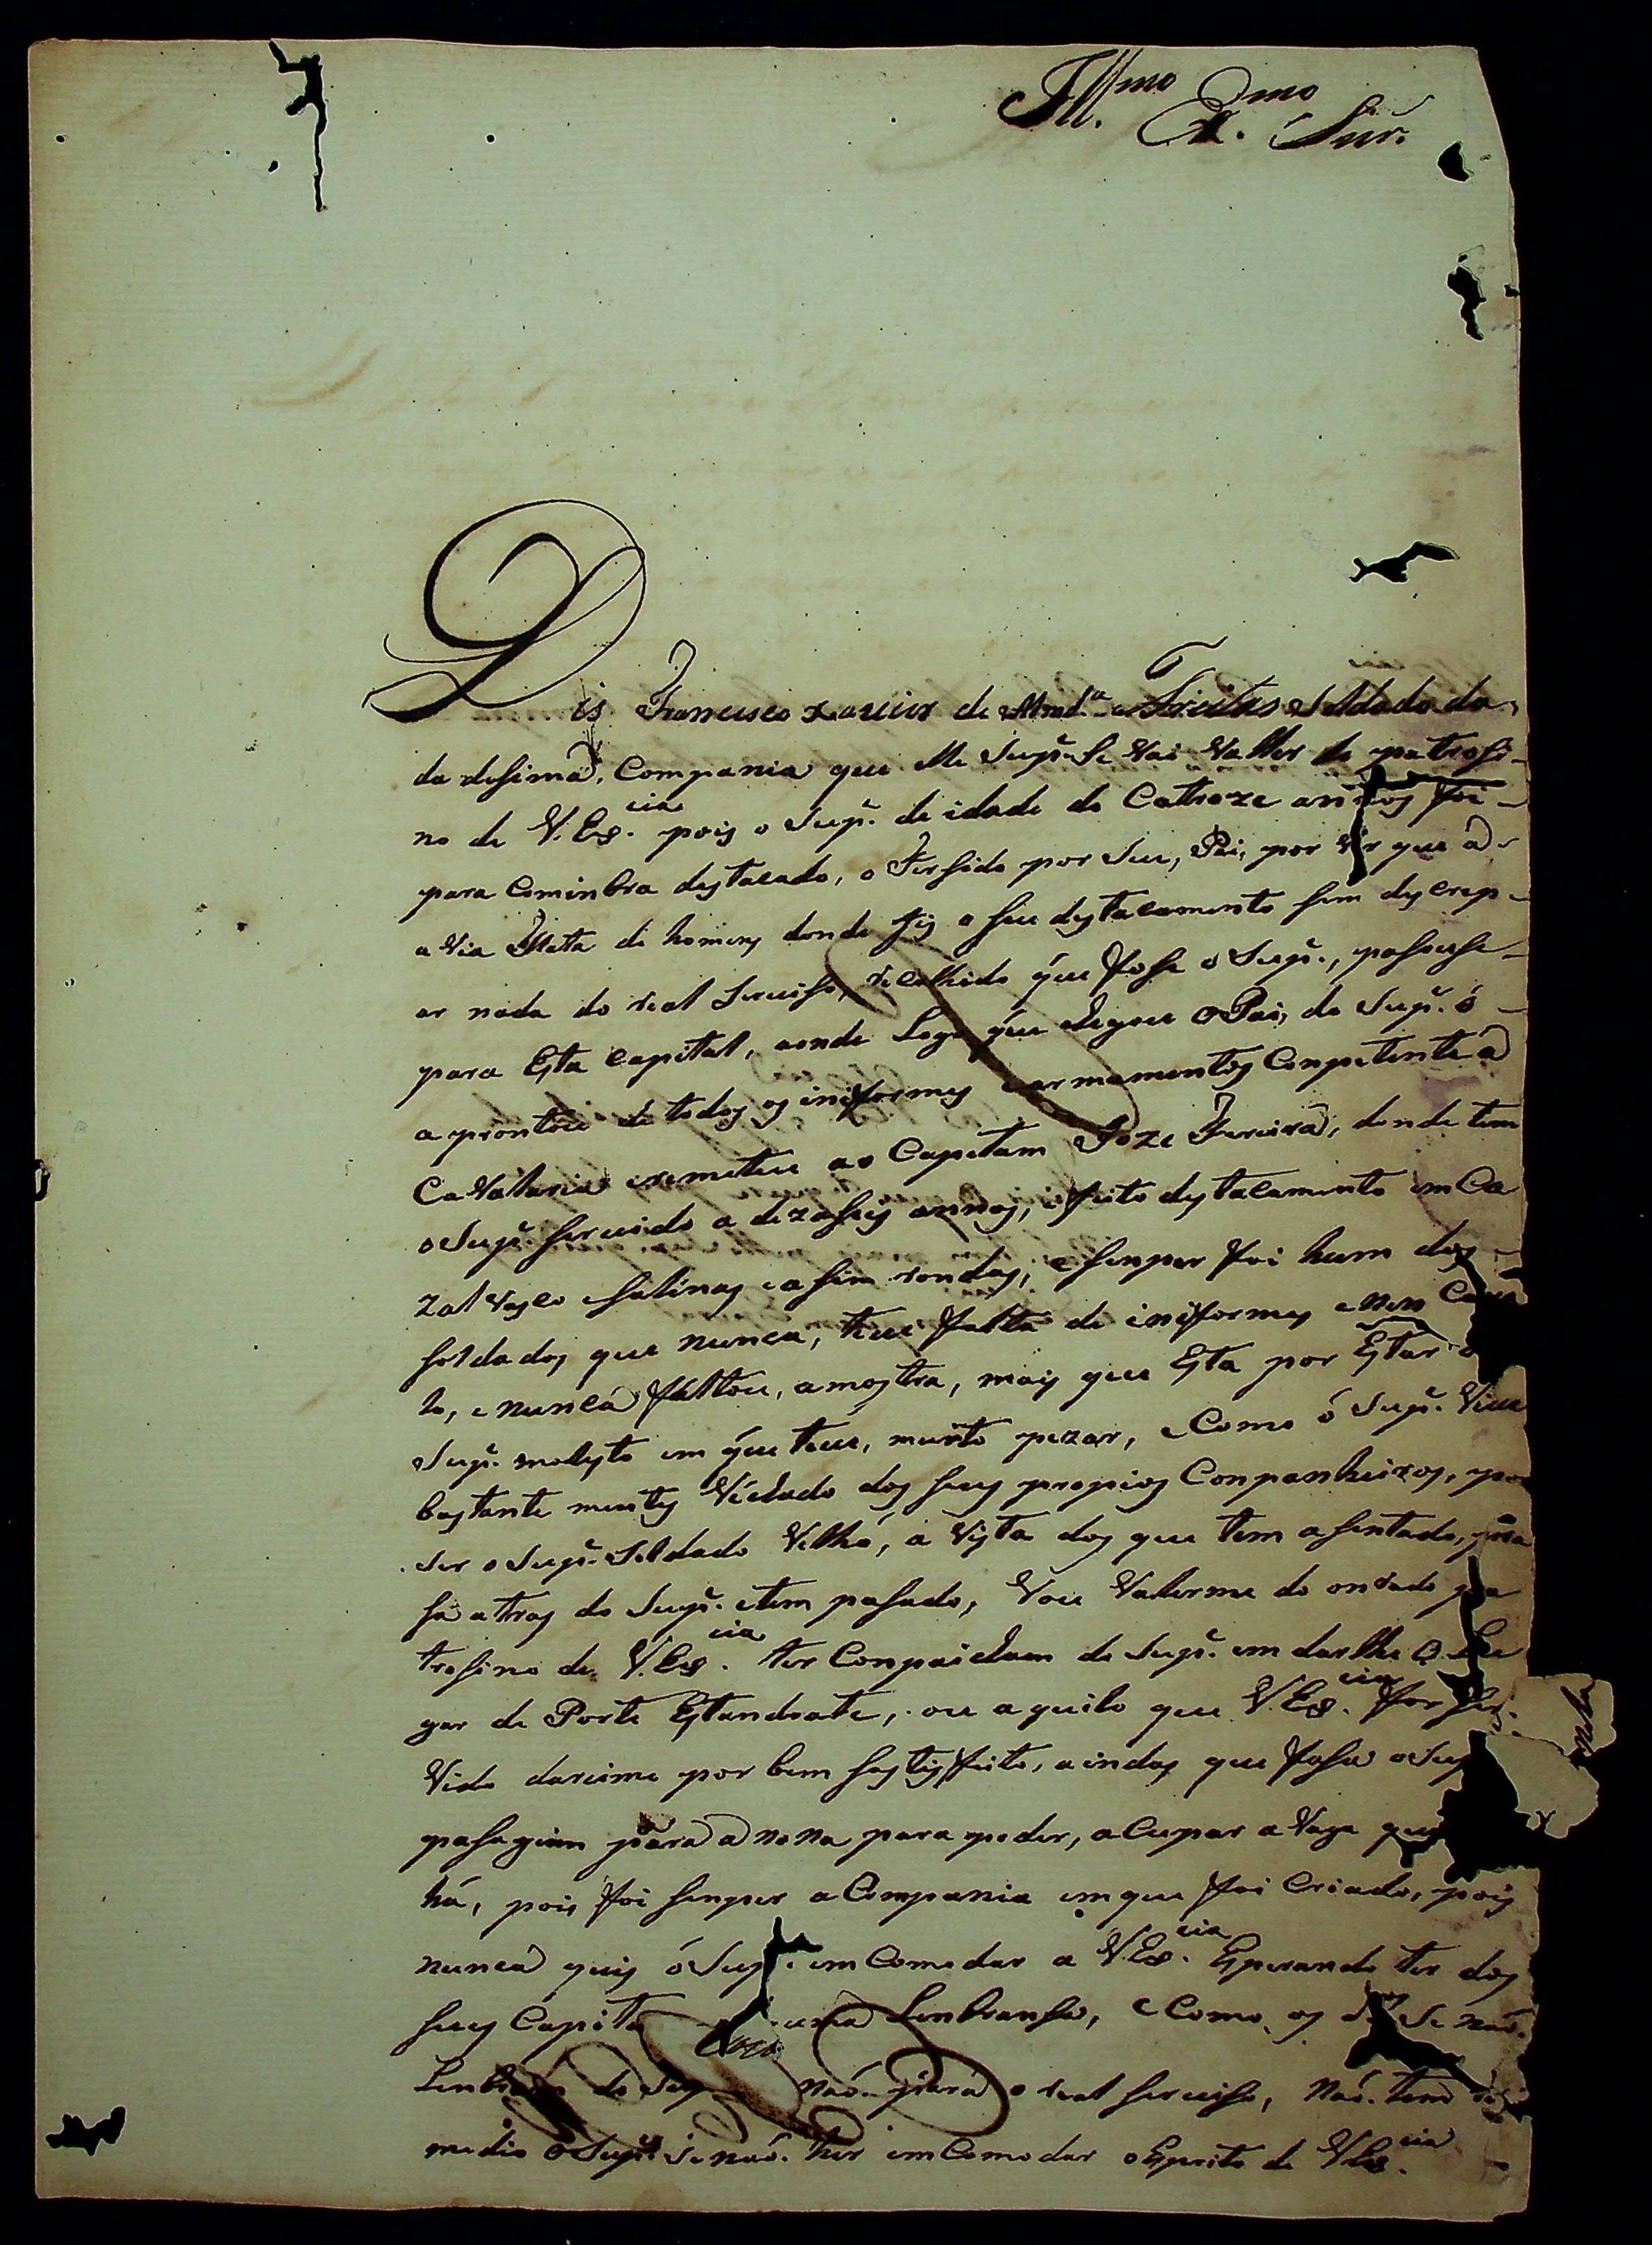 Ill.mo Ex.mo Snr.
Dis Francisco Xavier de Almd.a e Freitas Soldado da
da desima, Compania que elle Sup.e Se vai valler do patrosi-
no de V. Ex.cia pois o Sup.e de idade de Catroze annos foi
para Coinbra destacado, o Fersido por Seu, Pai, por ver que
a via falta de homens donde fes o seu destacamento sem descrep-
ar nada do real serviso, recolhido que fose o Sup.e, pasouse
para Esta capital, aonde Logo que Chegou O Pai, do Sup.e ó
a prontou de todos os iniformes e armamentos Conpetente a
Cavalaria e remeteu ao Capetam Joze Pereira, donde tem
o Sup.e servido a dezaseis annos, e feito destacamento em Ca
zal vasco e salinas e a sim rondas, e senper foi hum dos
soldados que nunca, teve falta de iniformes e nen
lo, e nunca faltou, a mostra, mais que Esta por Estar o
Sup.e molesto em que teve, muinto pezar, e Como ó Sup.e
bastante mentes dos seus propios Conpanheiros, por
ser o Sup.e Soldado Velho, a vista dos que tem a sentado,
sa atras do Sup.e e tem pasado, Vou Valerme do onrado pa
trosino de V. Ex.cia ter Conpaicham do Sup.e em darlhe O Lu
gar de Porte Estandrate, ou aquilo que V. Ex.cia for ser
vido dareime por bem sastisfeito, aindas que fasa o Sup
pasagem para a nona para poder, a Cupar a Vaga que
há, pois foi senper a Compania em que foi Criado, pois
nunca quis ó Sup.e emComodar a V. Ex.cia Esperando ter dos
seus Capita Lenbransa, e Como os Se naó
Lenbraó do Sup naó para o real serviso, Naó tem re
medio o Sup.e Se naó hir emComodar o Esprito de V. Ex.cia